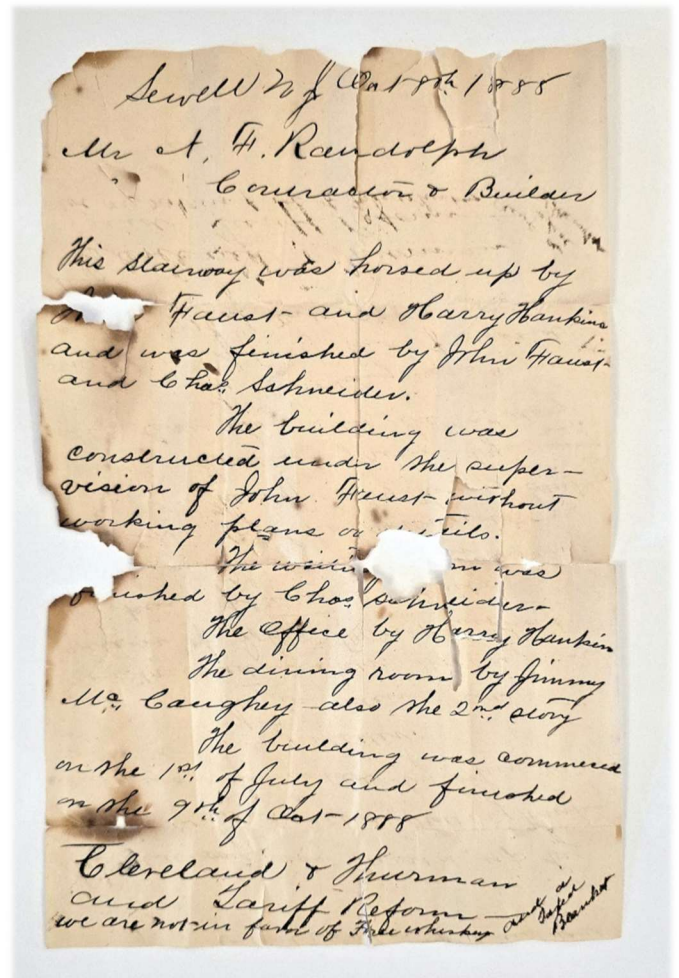 Sewell N J Oct 8th 1888
Mr A. F. Randolph
Contractor & Builder
This stairway was horsed up by
Faust and Harry Hankins
and was finished by John Faust
and Chas. Schneider.
The building was
constructed under the super-
vision of John Faust without
working plans or
The was
by Chas Schneider-
The Office by Harry Hankin
The dining room by Jimmy
Mc Caughey also the 2nd story
The building was commenced
on the 1st of July and finished
on the 9th of Oct 1888
Cleveland & Thurman
and Tariff Reform
we are not in favor of Free whiskey and a
Taxed
Blanket